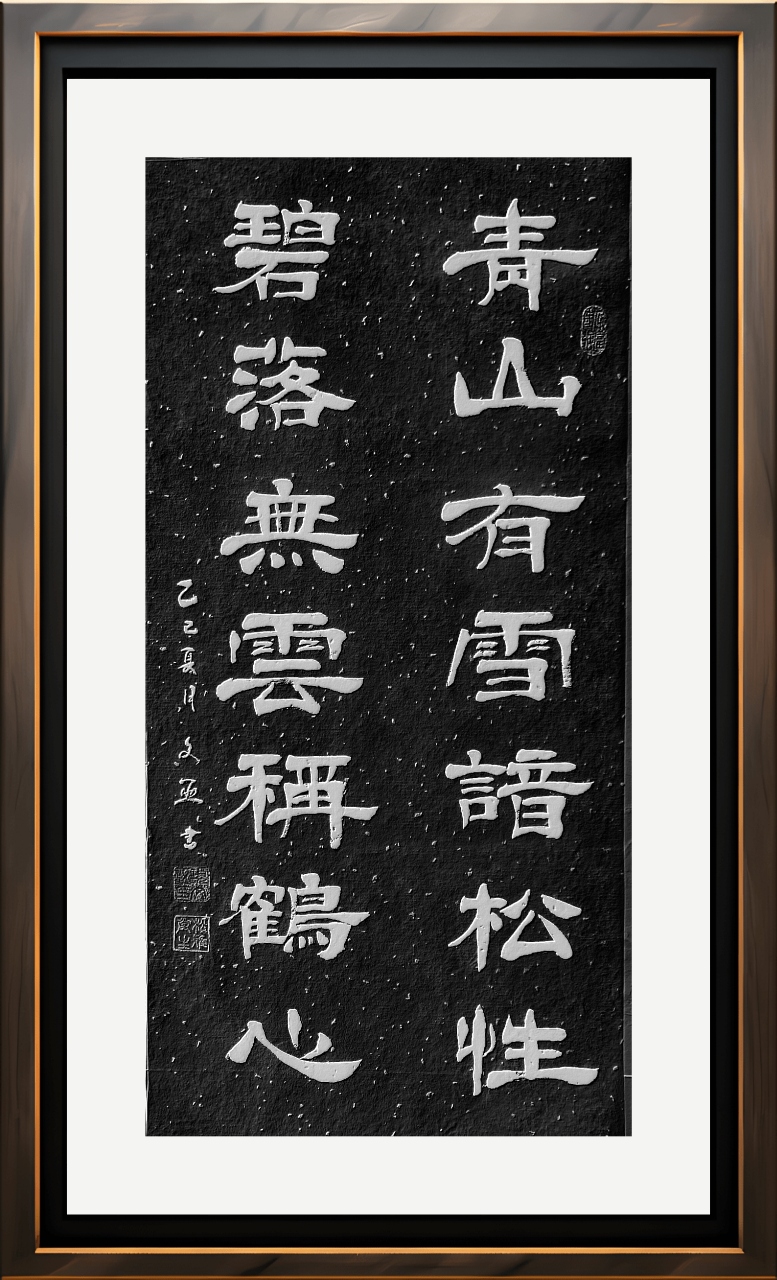 青山有雪諳松性
碧落無雲稱鶴心
乙巳夏月文亟書